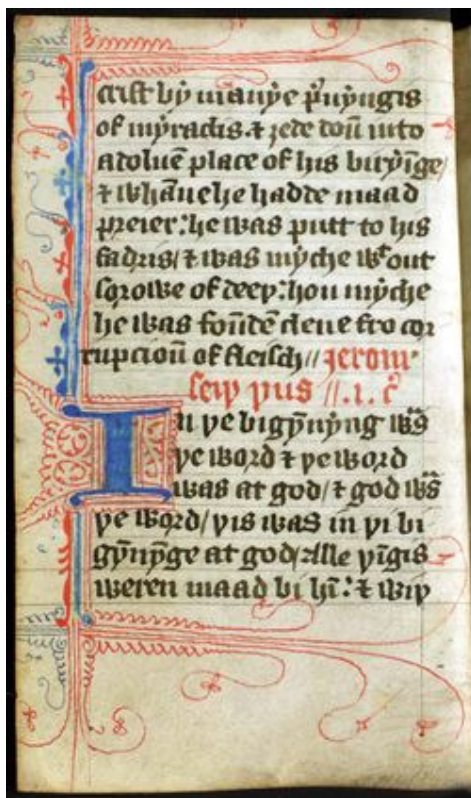 crist by manye p̃uyngis
of myraclis. ⁊ ȝede doū into
a doluē place of his biryīge/
⁊ whāne he hadde maad
preier: he was putt to his
fadris/ ⁊ was myche wᵗout
sorowe of deeþ: hou myche
he was foūdē clene fro cor
rupcioū of fleisch// Jerom
seiþ þus //.i. c̃
In þe bigȳnyng wᵃs
þe word ⁊ þe word
was at god/ ⁊ god wᵃs
þe word/ þis was in þi bi
gȳnynge at god/ Alle þīgis
weren maad bi hī: ⁊ wiþ